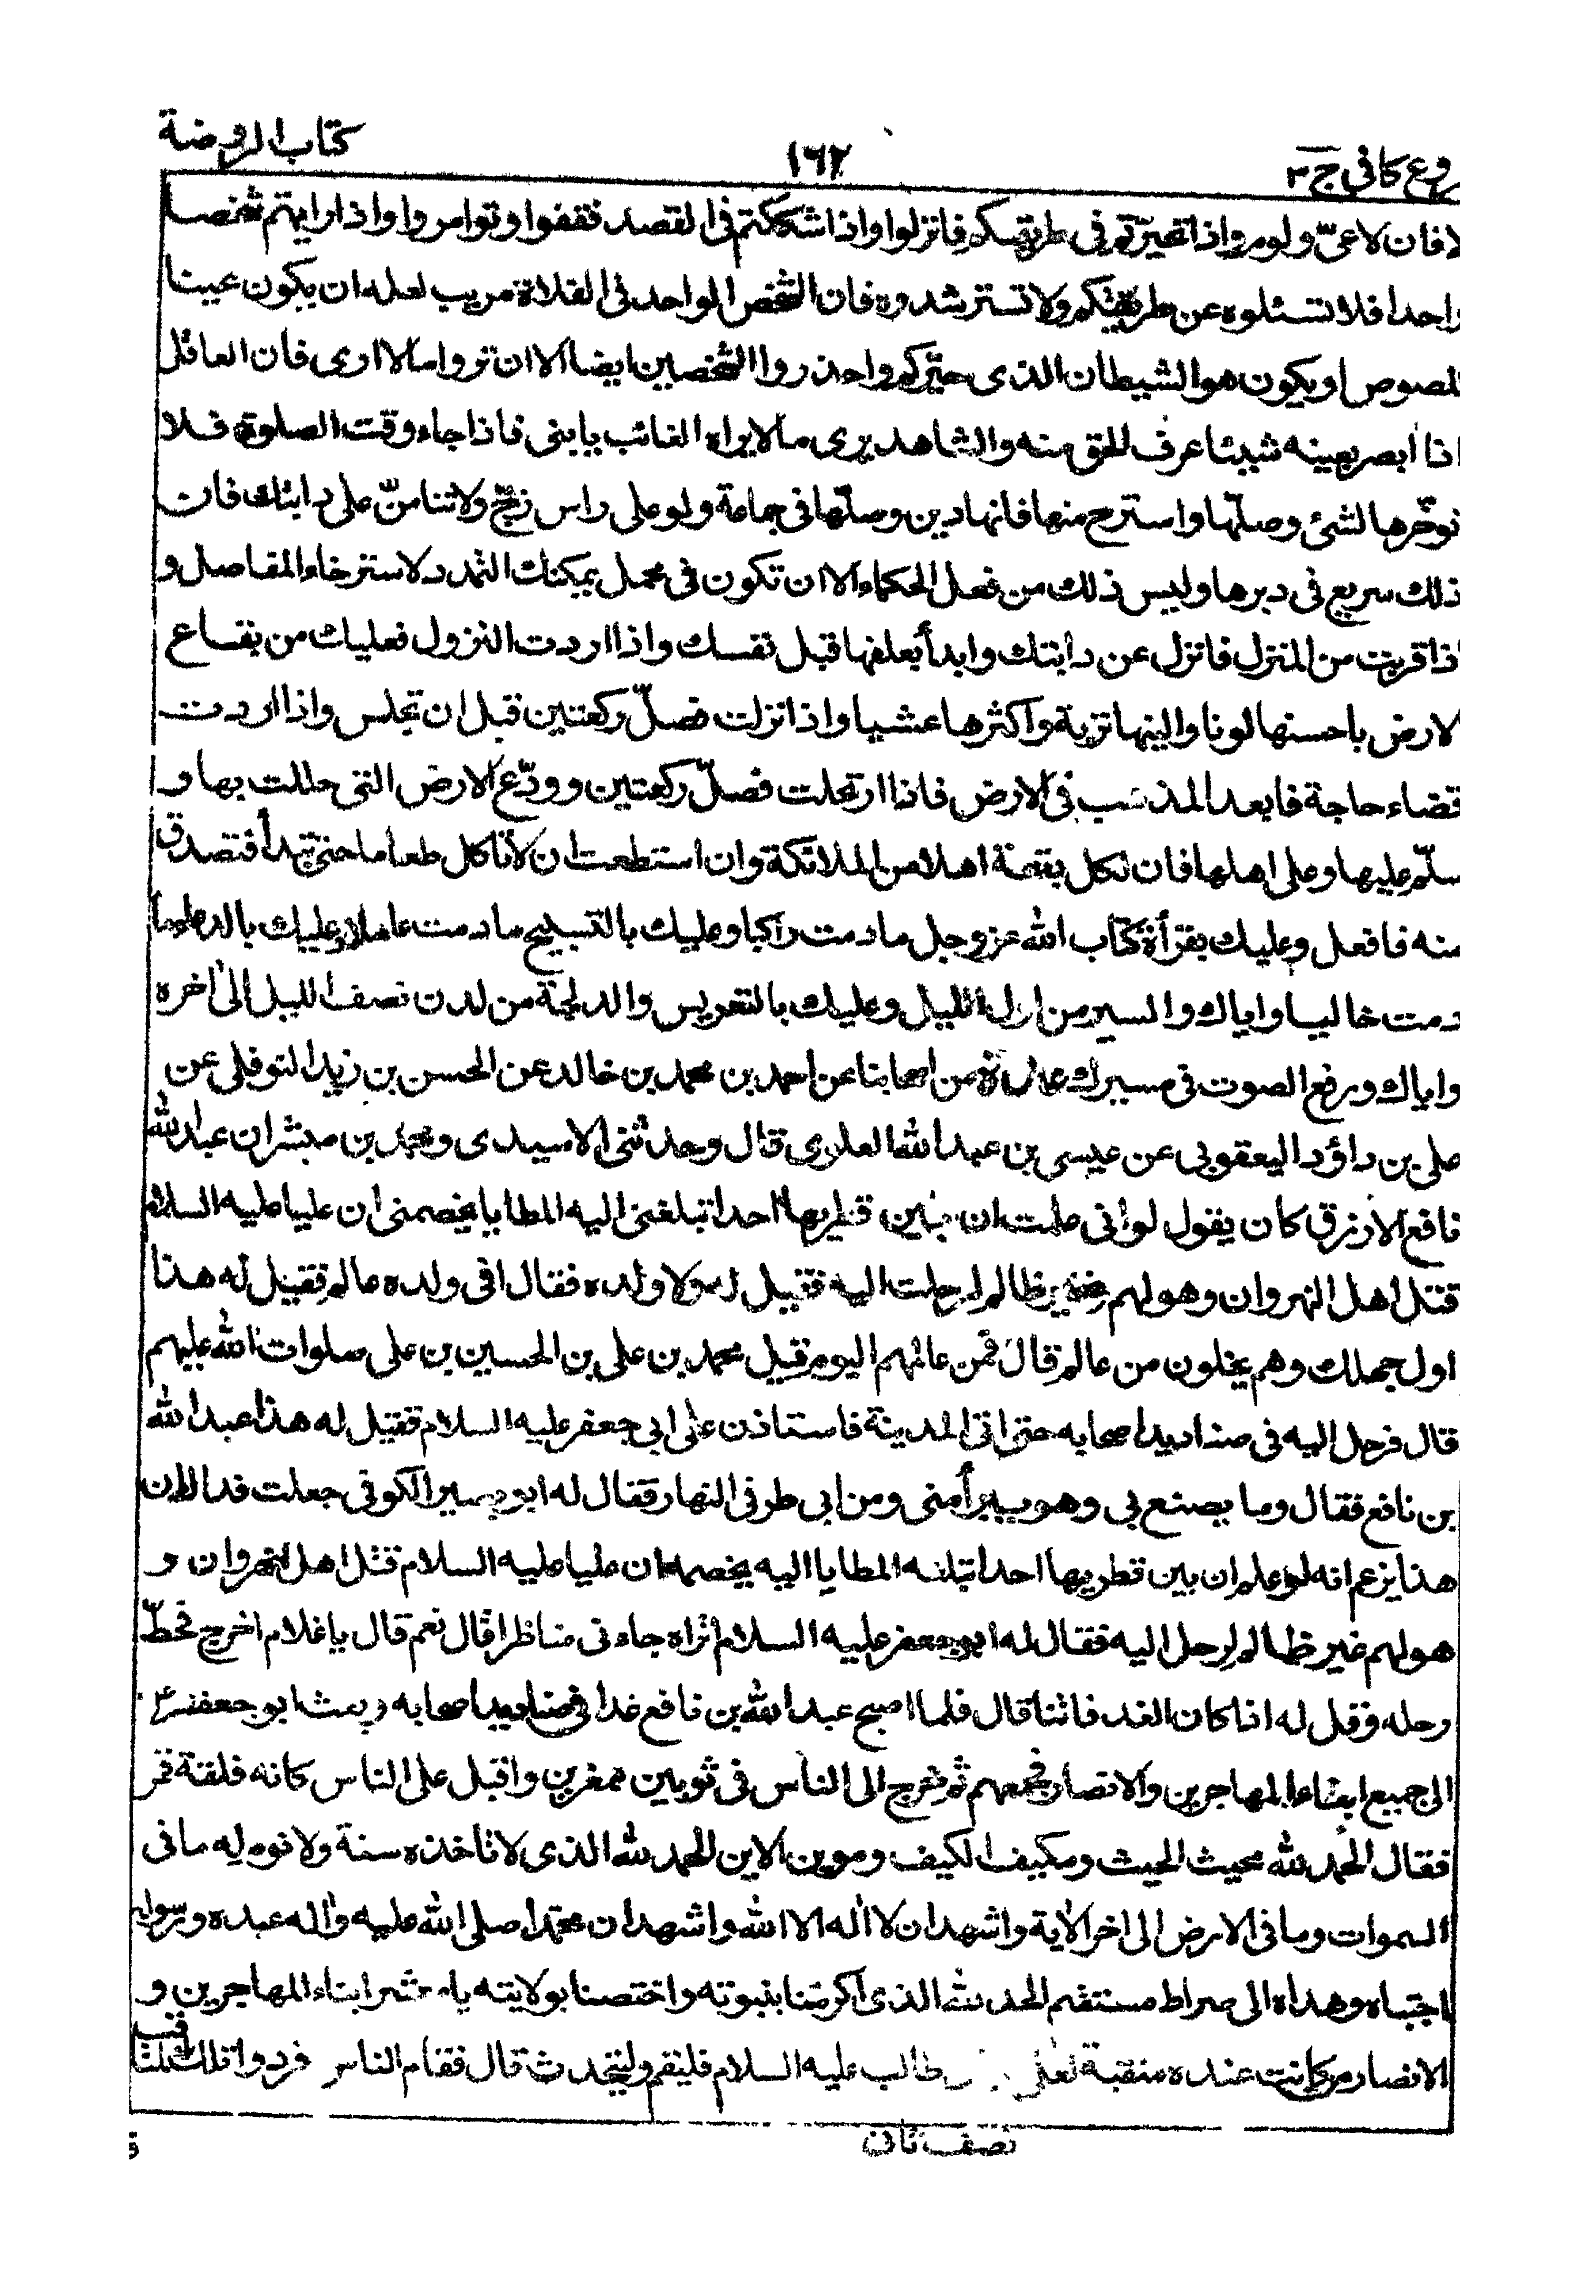 روع كافى ج٣
١٦٢
كتاب الروضة
لا فان لا عىّ ولوم واذا تحيّرتم فى طريقكم فانزلوا واذا شككتم فى القصد فقفوا وتوامروا واذا رايتم شخصا
واحدا فلا تسئلوه عن طريقكم ولا تسترشدوه فان الشخص الواحد فى الفلاة مريب لعله ان يكون عينا
للصوص او يكون هو الشيطان الذى حيّركم واحذروا الشخصين ايضا الا ان تروا مالا ارى فان العاقل
اذا ابصر بعينه شيئا عرف الحق منه والشاهد يرى مالا يراه الغائب يا بنى فاذا جاء وقت الصلوة فلا
توخّرها لشئ وصلّها واسترح منها فانها دين وصلّها فى جماعة ولو على راس زجّ ولا تنامنّ على دابتك فان
ذلك سريع فى دبرها وليس ذلك من فعل الحكماء الا ان تكون فى محمل يمكنك التمدد لاسترخاء المفاصل و
اذا قربت من المنزل فانزل عن دابتك وابدأ بعلفها قبل نفسك واذا اردت النزول فعليك من بقاع
الارض باحسنها لونا والينها تربة واكثرها عشبا واذا نزلت فصلّ ركعتين قبل ان تجلس واذا اردت
قضاء حاجة فابعد المذهب فى الارض فاذا ارتحلت فصلّ ركعتين وودّع الارض التى حللت بها و
سلّم عليها وعلى اهلها فان لكل بقعة اهلا من الملائكة وان استطعت ان لا تاكل طعاما حتى تبدأ فتصدق
منه فافعل وعليك بقرأة كتاب الله عز وجل ما دمت راكبا وعليك بالتسبيح ما دمت عاملا وعليك بالدعاء ما
دمت خاليا واياك والسير من اول الليل وعليك بالتعريس والدلجة من لدن نصف الليل الى اخره
واياك ورفع الصوت فى مسيرك عدة من اصحابنا عن احمد بن محمد بن خالد عن الحسن بن زيد النوفلى عن
على بن داؤد اليعقوبى عن عيسى بن عبد الله العلوى قال وحدثنى الاسيدى ومحمد بن مبشر ان عبد الله
نافع الازرق كان يقول لو انى علمت ان بين قطريها احدا تبلغنى اليه المطايا يخصمنى ان عليا عليه السلام
قتل اهل النهروان وهو لهم غير ظالم لرحلت اليه فقيل له ولا ولده فقال افى ولده عالم فقيل له هذا
اول جهلك وهم يخلون من عالم قال فمن عالمهم اليوم قيل محمد بن على بن الحسين بن على صلوات الله عليهم
قال فرحل اليه فى صناديد اصحابه حتى اتى المدينة فاستاذن على ابى جعفر عليه السلام فقيل له هذا عبد الله
بن نافع فقال وما يصنع بى وهو يبرأ منى ومن ابى طرفى النهار فقال له ابو بصير الكوفى جعلت فداك ان
هذا يزعم انه لو علم ان بين قطريها احدا تبلغه المطايا اليه يخصمه ان عليا عليه السلام قتل اهل النهروان و
هو لهم غير ظالم لرحل اليه فقال له ابو جعفر عليه السلام اتراه جاءنى مناظرا قال نعم قال يا غلام اخرج فحطّ
رحله وقل له اذا كان الغد فاتنا قال فلما اصبح عبد الله بن نافع غدا فى صناديد اصحابه وبعث ابو جعفر ع
الى جميع ابناء المهاجرين والانصار فجمعهم ثم خرج الى الناس فى ثوبين ممغرين واقبل على الناس كانه فلقة قمر
فقال الحمد لله محيث الحيث ومكيف الكيف وموين الاين الحمد لله الذى لا تاخذه سنة ولا نوم له ما فى
السموات وما فى الارض الى اخر الاية واشهد ان لا اله الا الله واشهد ان محمدا صلى الله عليه واله عبده ورسوله
اجتباه وهداه الى صراط مستقيم الحمد لله الذى اكرمنا بنبوته واختصنا بولايته يا معشر ابناء المهاجرين و
الانصار من كانت عنده منقبة لعلى طالب عليه السلام فليقم وليتحدث قال فقام الناس فردوا تلك المناقب
نصف ثان